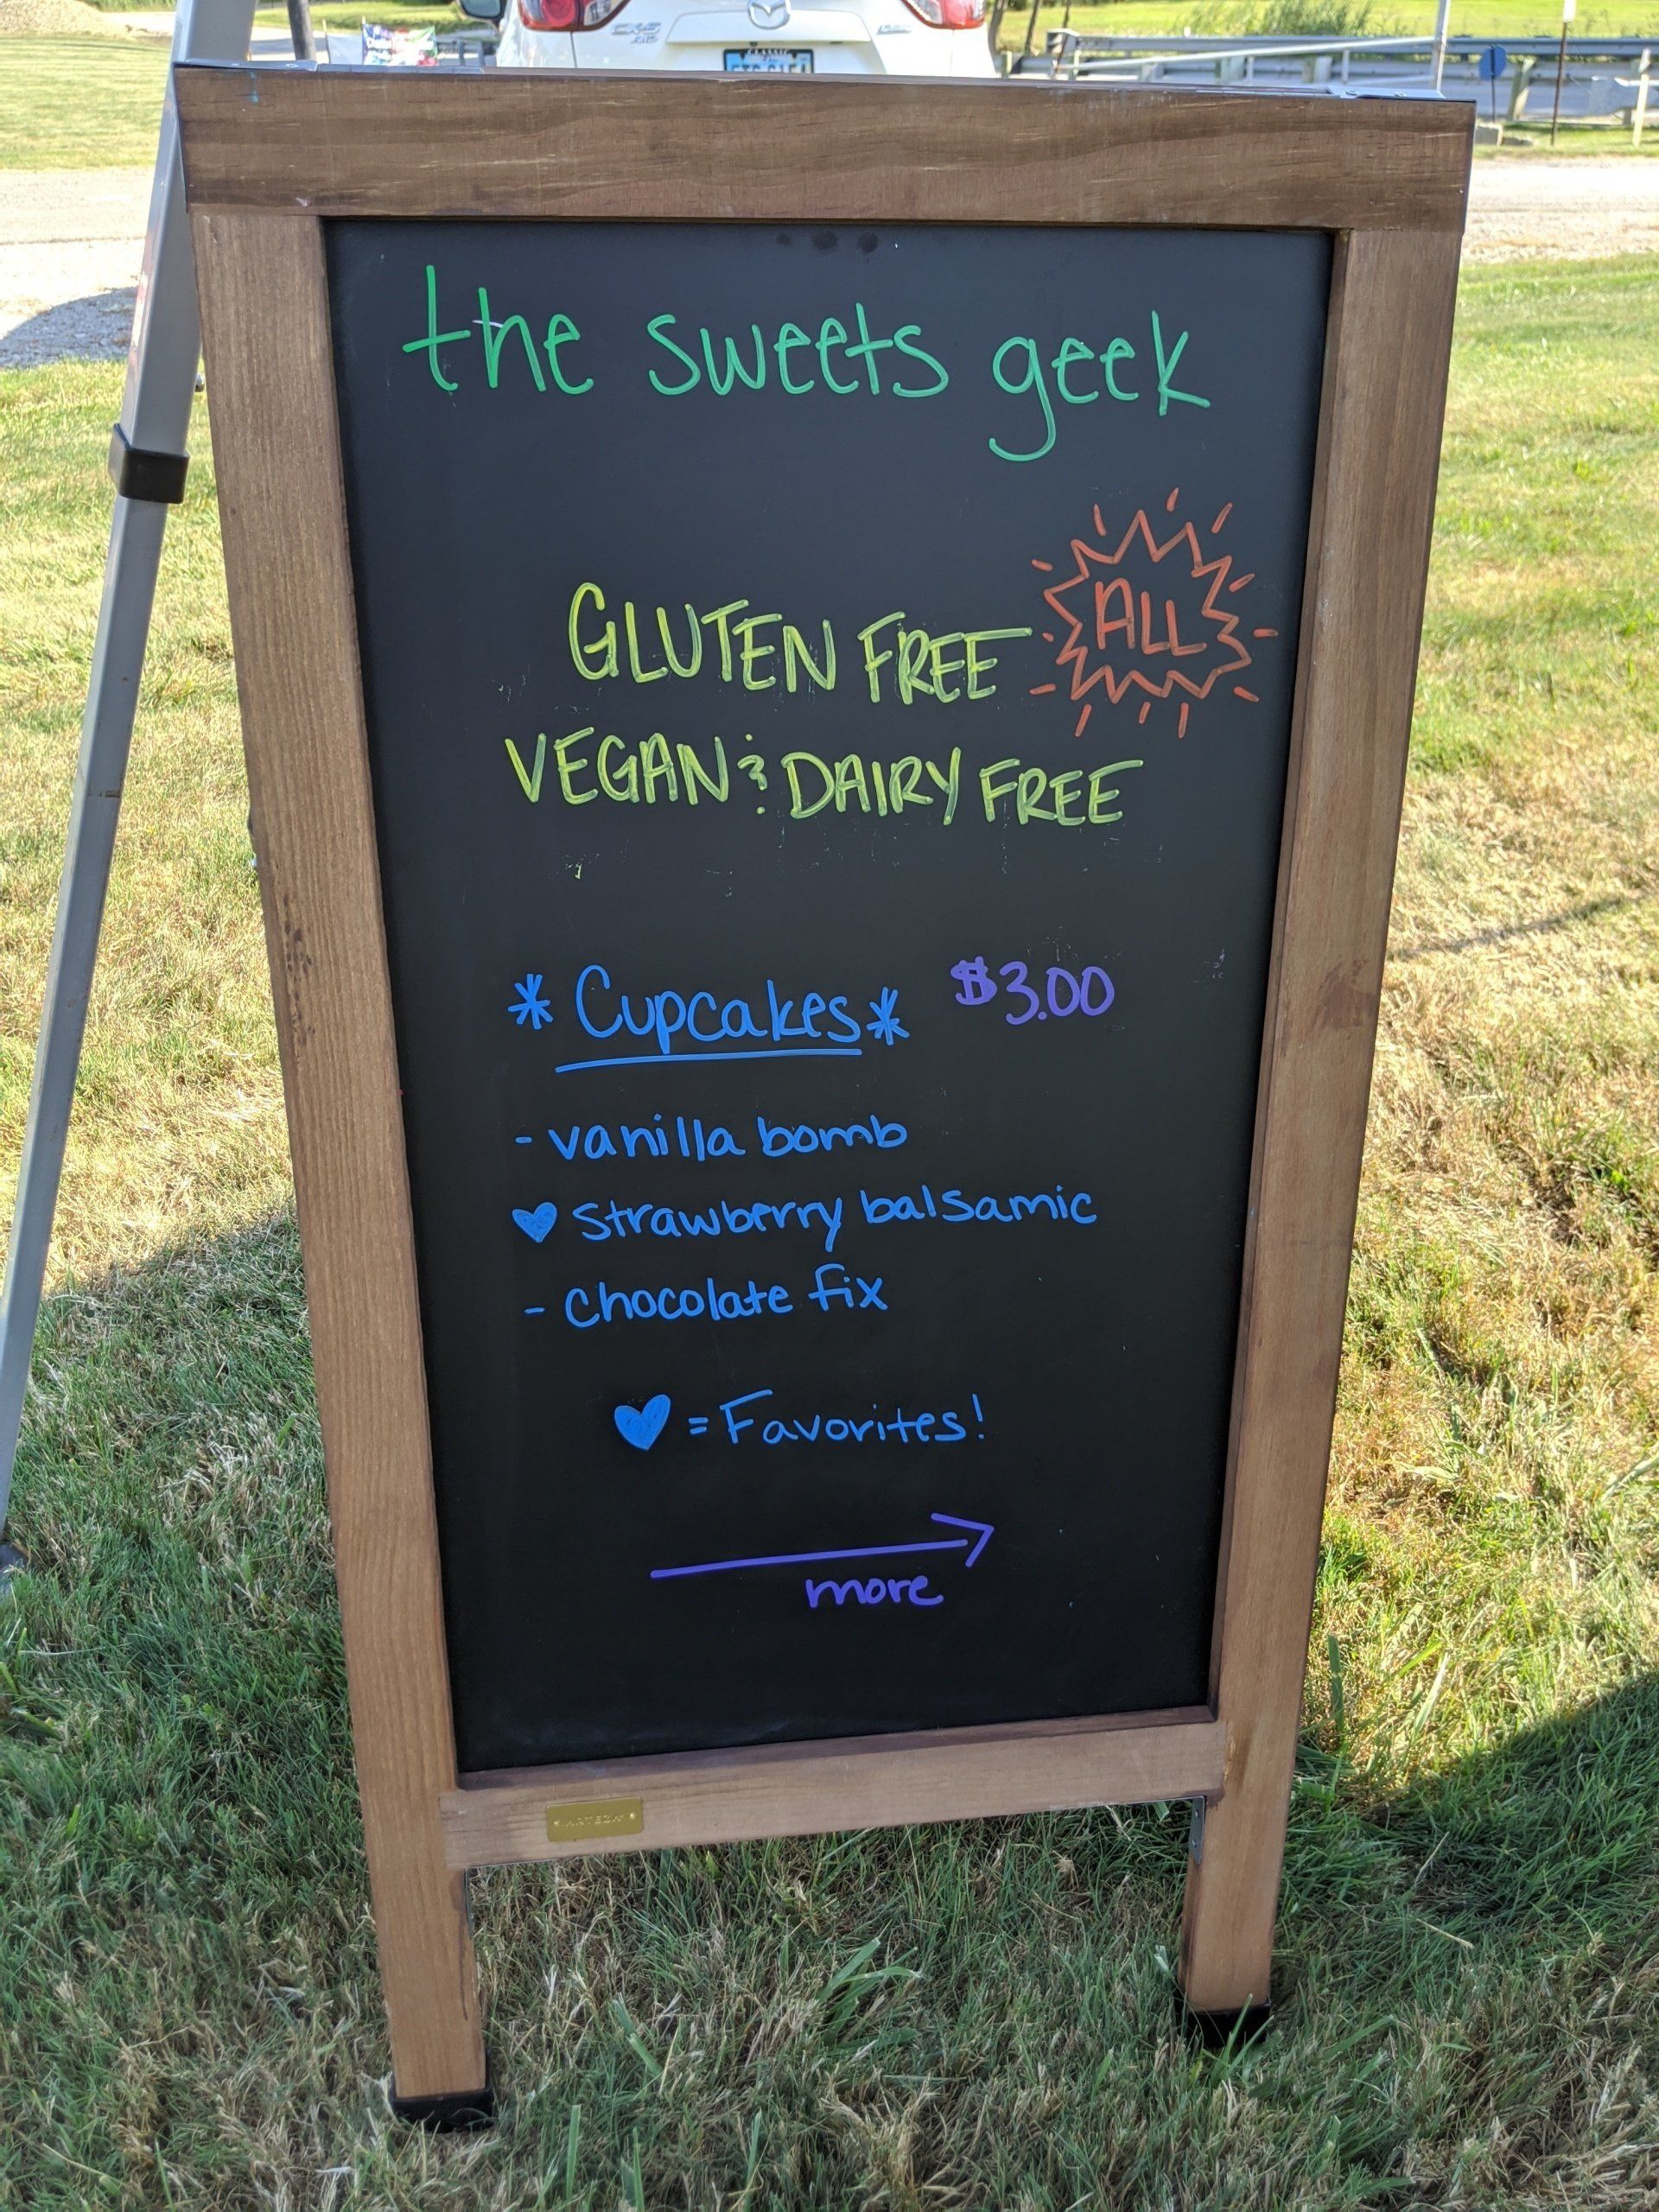 the sweets geek
GLUTEN FREE ALL
VEGAN & DAIRY FREE
* Cupcakes * $3.00
- vanilla bomb
♥ strawberry balsamic
- chocolate fix
♥ = Favorites!
→
more
ARTEZA